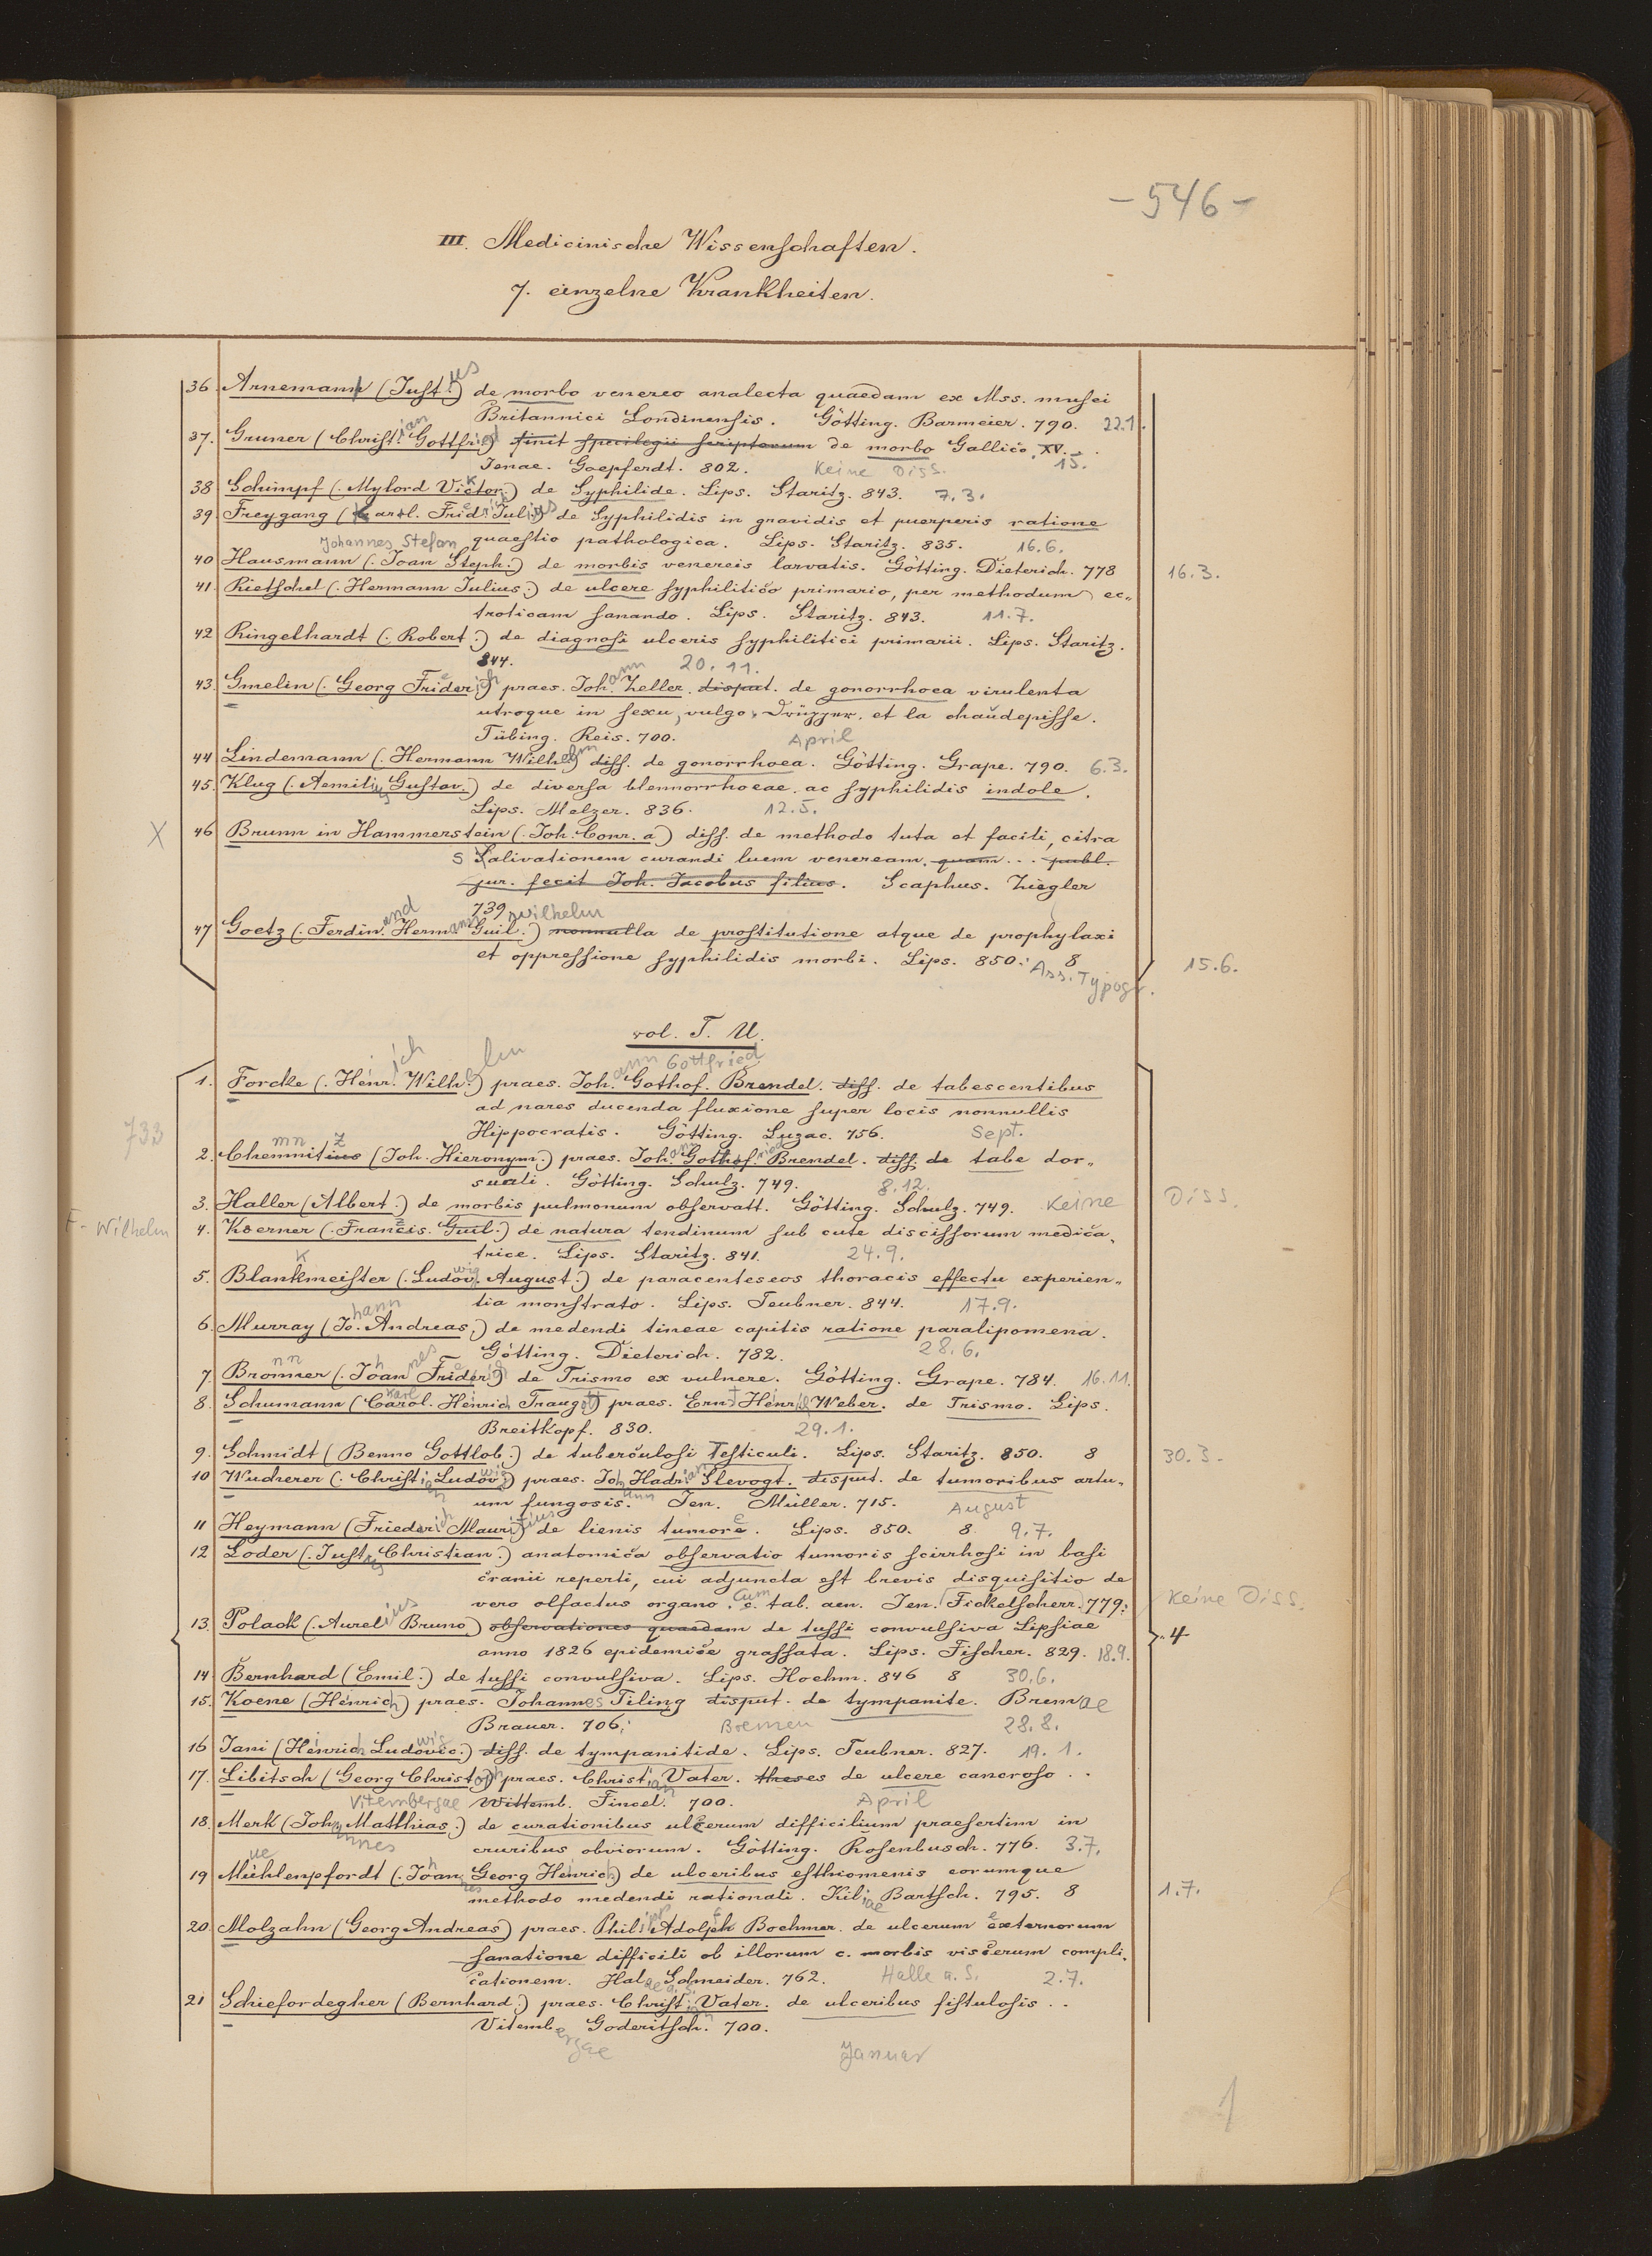 - 546 -
III. Medicinische Wissenschaften.
7. einzelne Krankheiten.
36. Arnemann (Just.us) de morbo venereo analecta quaedam ex Mss. musei
Britannici Londinensis. Götting. Barmeier. 790. 22.1.
37. Gruner (Christian Gottfried) finit spicilegii scriptorum de morbo Gallico. XV. . .
Jenae. Goepferdt. 802. Keine Diss. 15.
38 Schimpf (. Mylord Victor.) de Syphilide. Lips. Staritz. 843. 7.3.
39. Freygang (Karl. Fridr. Julius) de Syphilidis in gravidis et puerperis ratione
Johannes Stefan quaestio pathologica. Lips. Staritz. 835. 16.6.
40 Hausmann (. Joan Steph.) de morbis venereis larvatis. Götting. Dieterich. 778 16.3.
41. Rietschel (. Hermann Julius.) de ulcere syphilitico primario, per methodum ec„
troticam sanando. Lips. Staritz. 843. 11.7.
42 Ringelhardt (. Robert.) de diagnosi ulceris syphilitici primarii. Lips. Staritz.
844. 20.11.
43. Gmelin (. Georg Friderich) praes. Johann Zeller. disput. de gonorrhoea virulenta
utroque in sexu, vulgo, Drüpper. et la chaudepisse.
Tübing. Reis. 700. April
44 Lindemann (. Hermann Wilhelm) diss. de gonorrhoea. Götting. Grape. 790. 6.3.
45. Klug (. Aemilius Gustav.) de diversa blennorrhoeae ac syphilidis indole.
Lips. Melzer. 836. 12.5.
X 46 Brunn in Hammerstein (. Joh. Conr. a) diss. de methodo tuta et facili, citra
s Salivationem curandi luem veneream, quam ... publ.
jur. fecit Joh. Jacobus filius. Scaphus. Ziegler
739
47 Goetz (. Ferdinand Hermann Guil.) Wilhelm nonnulla de prostitutione atque de prophylaxi
et oppressione syphilidis morbi. Lips. 850. 8 15.6.
Ass. Typogr.
vol. T. U.
1. Forcke (. Heinrich Wilhelm) praes. Johann Gothof. Gottfried Brendel. diss. de tabescentibus
ad nares ducenda fluxione super locis nonnullis
733 Hippocratis. Götting. Luzac. 756. Sept.
2. Chemnitius mn z (Joh. Hieronym.) praes. Johann Gothofried Brendel. diss. de tabe dor„
suali. Götting. Schulz. 749. 8.12.
3. Haller (Albert.) de morbis pulmonum observatt. Götting. Schulz. 749. Keine Diss.
F. Wilhelm 4. Koerner (. Francis. Guil.) de natura tendinum sub cute discissorum medica„
trice. Lips. Staritz. 841. 24.9.
5. Blankmeister (. Ludowig August.) de paracenteseos thoracis effectu experien„
tia monstrato. Lips. Teubner. 844. 17.9.
6. Murray (Johann Andreas.) de medendi tineae capitis ratione paralipomena.
Götting. Dieterich. 782. 28.6.
7. Bronner nn (. Johannes Friderich) de Trismo ex vulnere. Götting. Grape. 784. 16.11.
8. Schumann (Carol. Karl Heinrich Traugott) praes. Ernst Heinrich Weber. de Trismo. Lips.
Breitkopf. 830. 29.1.
9. Schmidt (Benno Gottlob.) de tuberculosi Testiculi. Lips. Staritz. 850. 8 30.3.
10 Wucherer (. Christian Ludowig) praes. Johann Hadrian Slevogt. disput. de tumoribus artu„
um fungosis. Jen. Müller. 715. August
11 Heymann (Friederich Mauritius) de lienis tumore. Lips. 850. 8 9.7.
12 Loder (. Justus Christian.) anatomica observatio tumoris scirrhosi in basi
cranii reperti, cui adjuncta est brevis disquisitio de
vero olfactus organo. c. Cum tab. aen. Jen. Fickelscherr. 779. Keine Diss.
13. Polack (. Aurelius Bruno) observationes quaedam de tussi convulsiva Lipsiae „4
anno 1826 epidemice grassata. Lips. Fischer. 829. 18.9.
14. Bernhard (Emil.) de tussi convulsiva. Lips. Hoehm. 846 8 30.6.
15. Koene (Heinrich) praes. Johannes Tiling disput. de tympanite. Bremae
Brauer. 706. Bremen 28.8.
16 Jani (Heinrich Ludovic.) wig diss. de tympanitide. Lips. Teubner. 827. 19.1.
17. Libitsch (Georg Christoph) praes. Christian Vater. theses de ulcere cancroso . .
Vitembergae Wittemb. Fincel. 700. April
18. Merk (Johannes Matthias.) de curationibus ulcerum difficilium praesertim in
cruribus obviorum. Götting. Rosenbusch. 776. 3.7.
19 Mühlenpfordt ue (. Johannes Georg Heinrich) de ulceribus esthiomenis eorumque
methodo medendi rationali. Kiliae Bartsch. 795. 8 1.7.
20 Molzahn (Georg Andreas) praes. Philipp Adolph Boehmer. de ulcerum externorum
sanatione difficili ob illorum c. morbis viscerum compli„
cationem. Halae a. S. Schneider. 762. Halle a. S. 2.7.
21 Schiefordegher (Bernhard.) praes. Christian Vater. de ulceribus fistulosis . .
Vitembergae Goderitsch. 700.
Januar
1